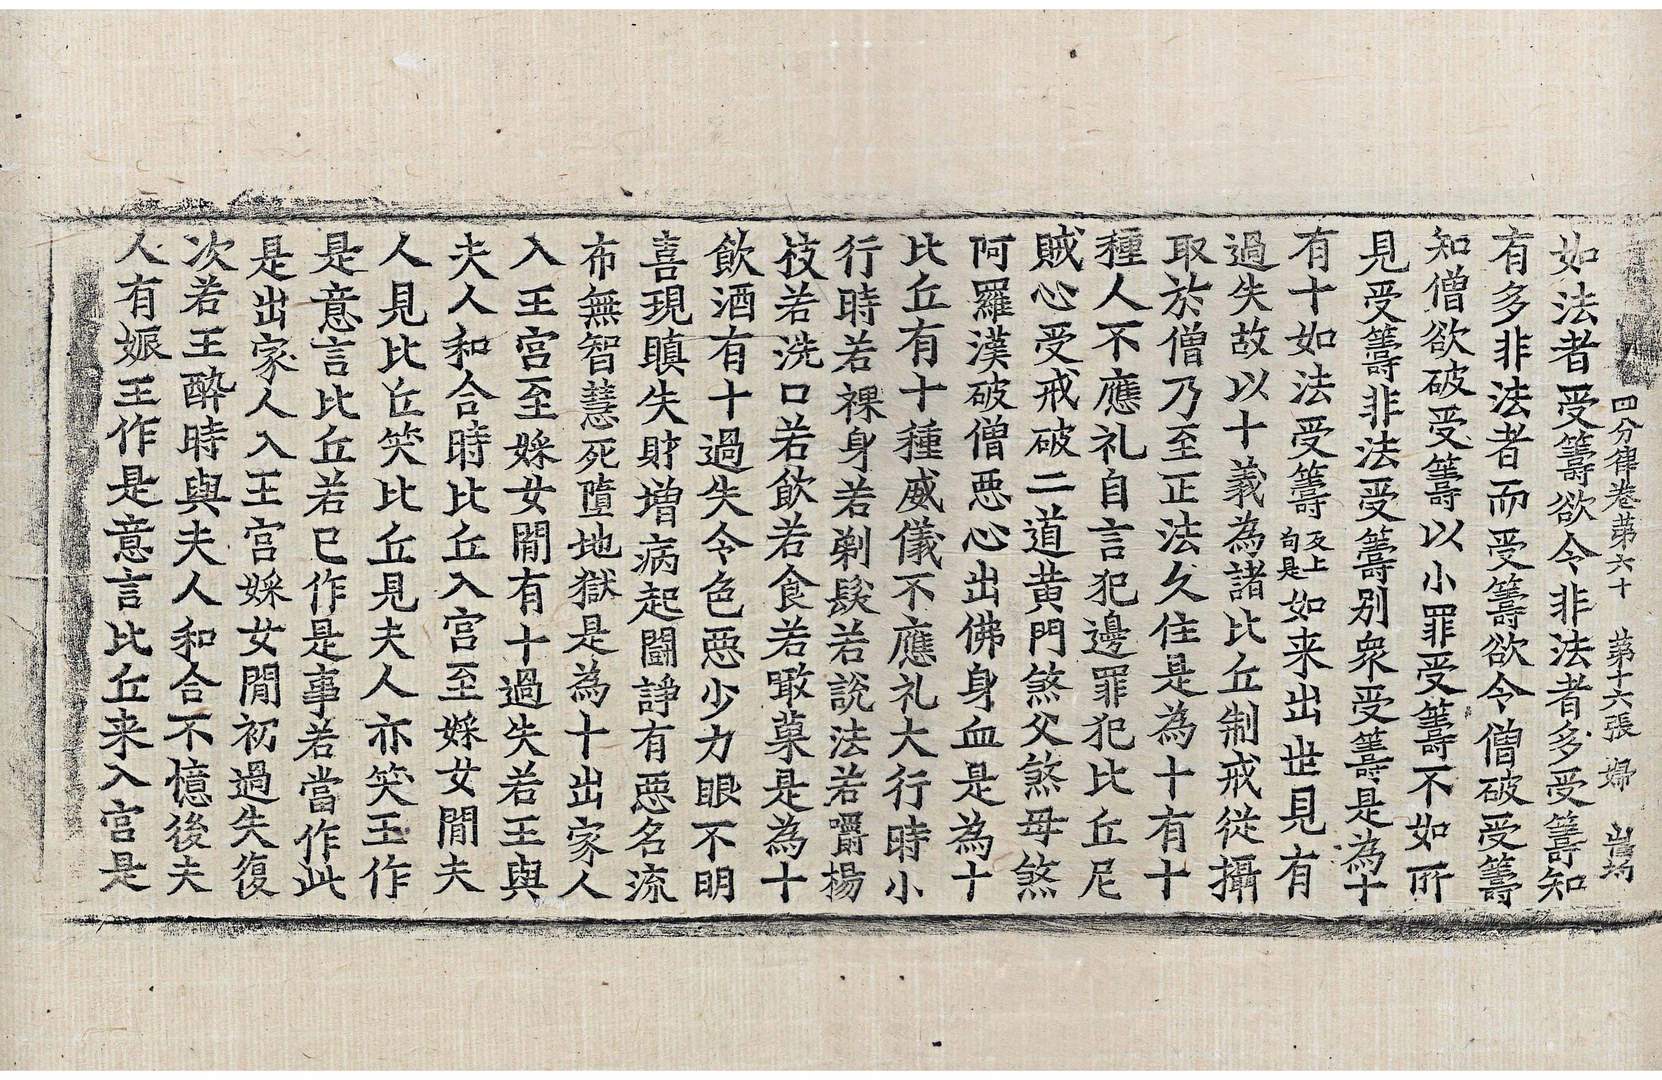 四分律卷苐六十　第十六張　婦
如法者受籌欲令非法者多受籌知
有多非法者而受籌欲令僧破受籌
知僧欲破受籌以小罪受籌不如所
見受籌非法受籌別衆受籌是為十
有十如法受籌反上句是如来出世見有
過失故以十義為諸比丘制戒従攝
取於僧乃至正法久住是為十有十
種人不應礼自言犯邊罪犯比丘尼
賊心受戒破二道黄門煞父煞母煞
阿羅漢破僧惡心出佛身血是為十
比丘有十種威儀不應礼大行時小
行時若裸身若剃髮若說法若嚼楊
枝若洗口若飲若食若噉菓是為十
飲酒有十過失令色惡少力眼不明
喜現瞋失財增病起闘諍有惡名流
布無智慧死墮地獄是為十出家人
入王宮至婇女間有十過失若王與
夫人和合時比丘入宮至婇女間夫
人見比丘笑比丘見夫人亦笑王作
是意言比丘若已作是事若當作此
是出家人入王宮婇女間初過失復
次若王醉時與夫人和合不憶後夫
人有娠王作是意言比丘来入宮是